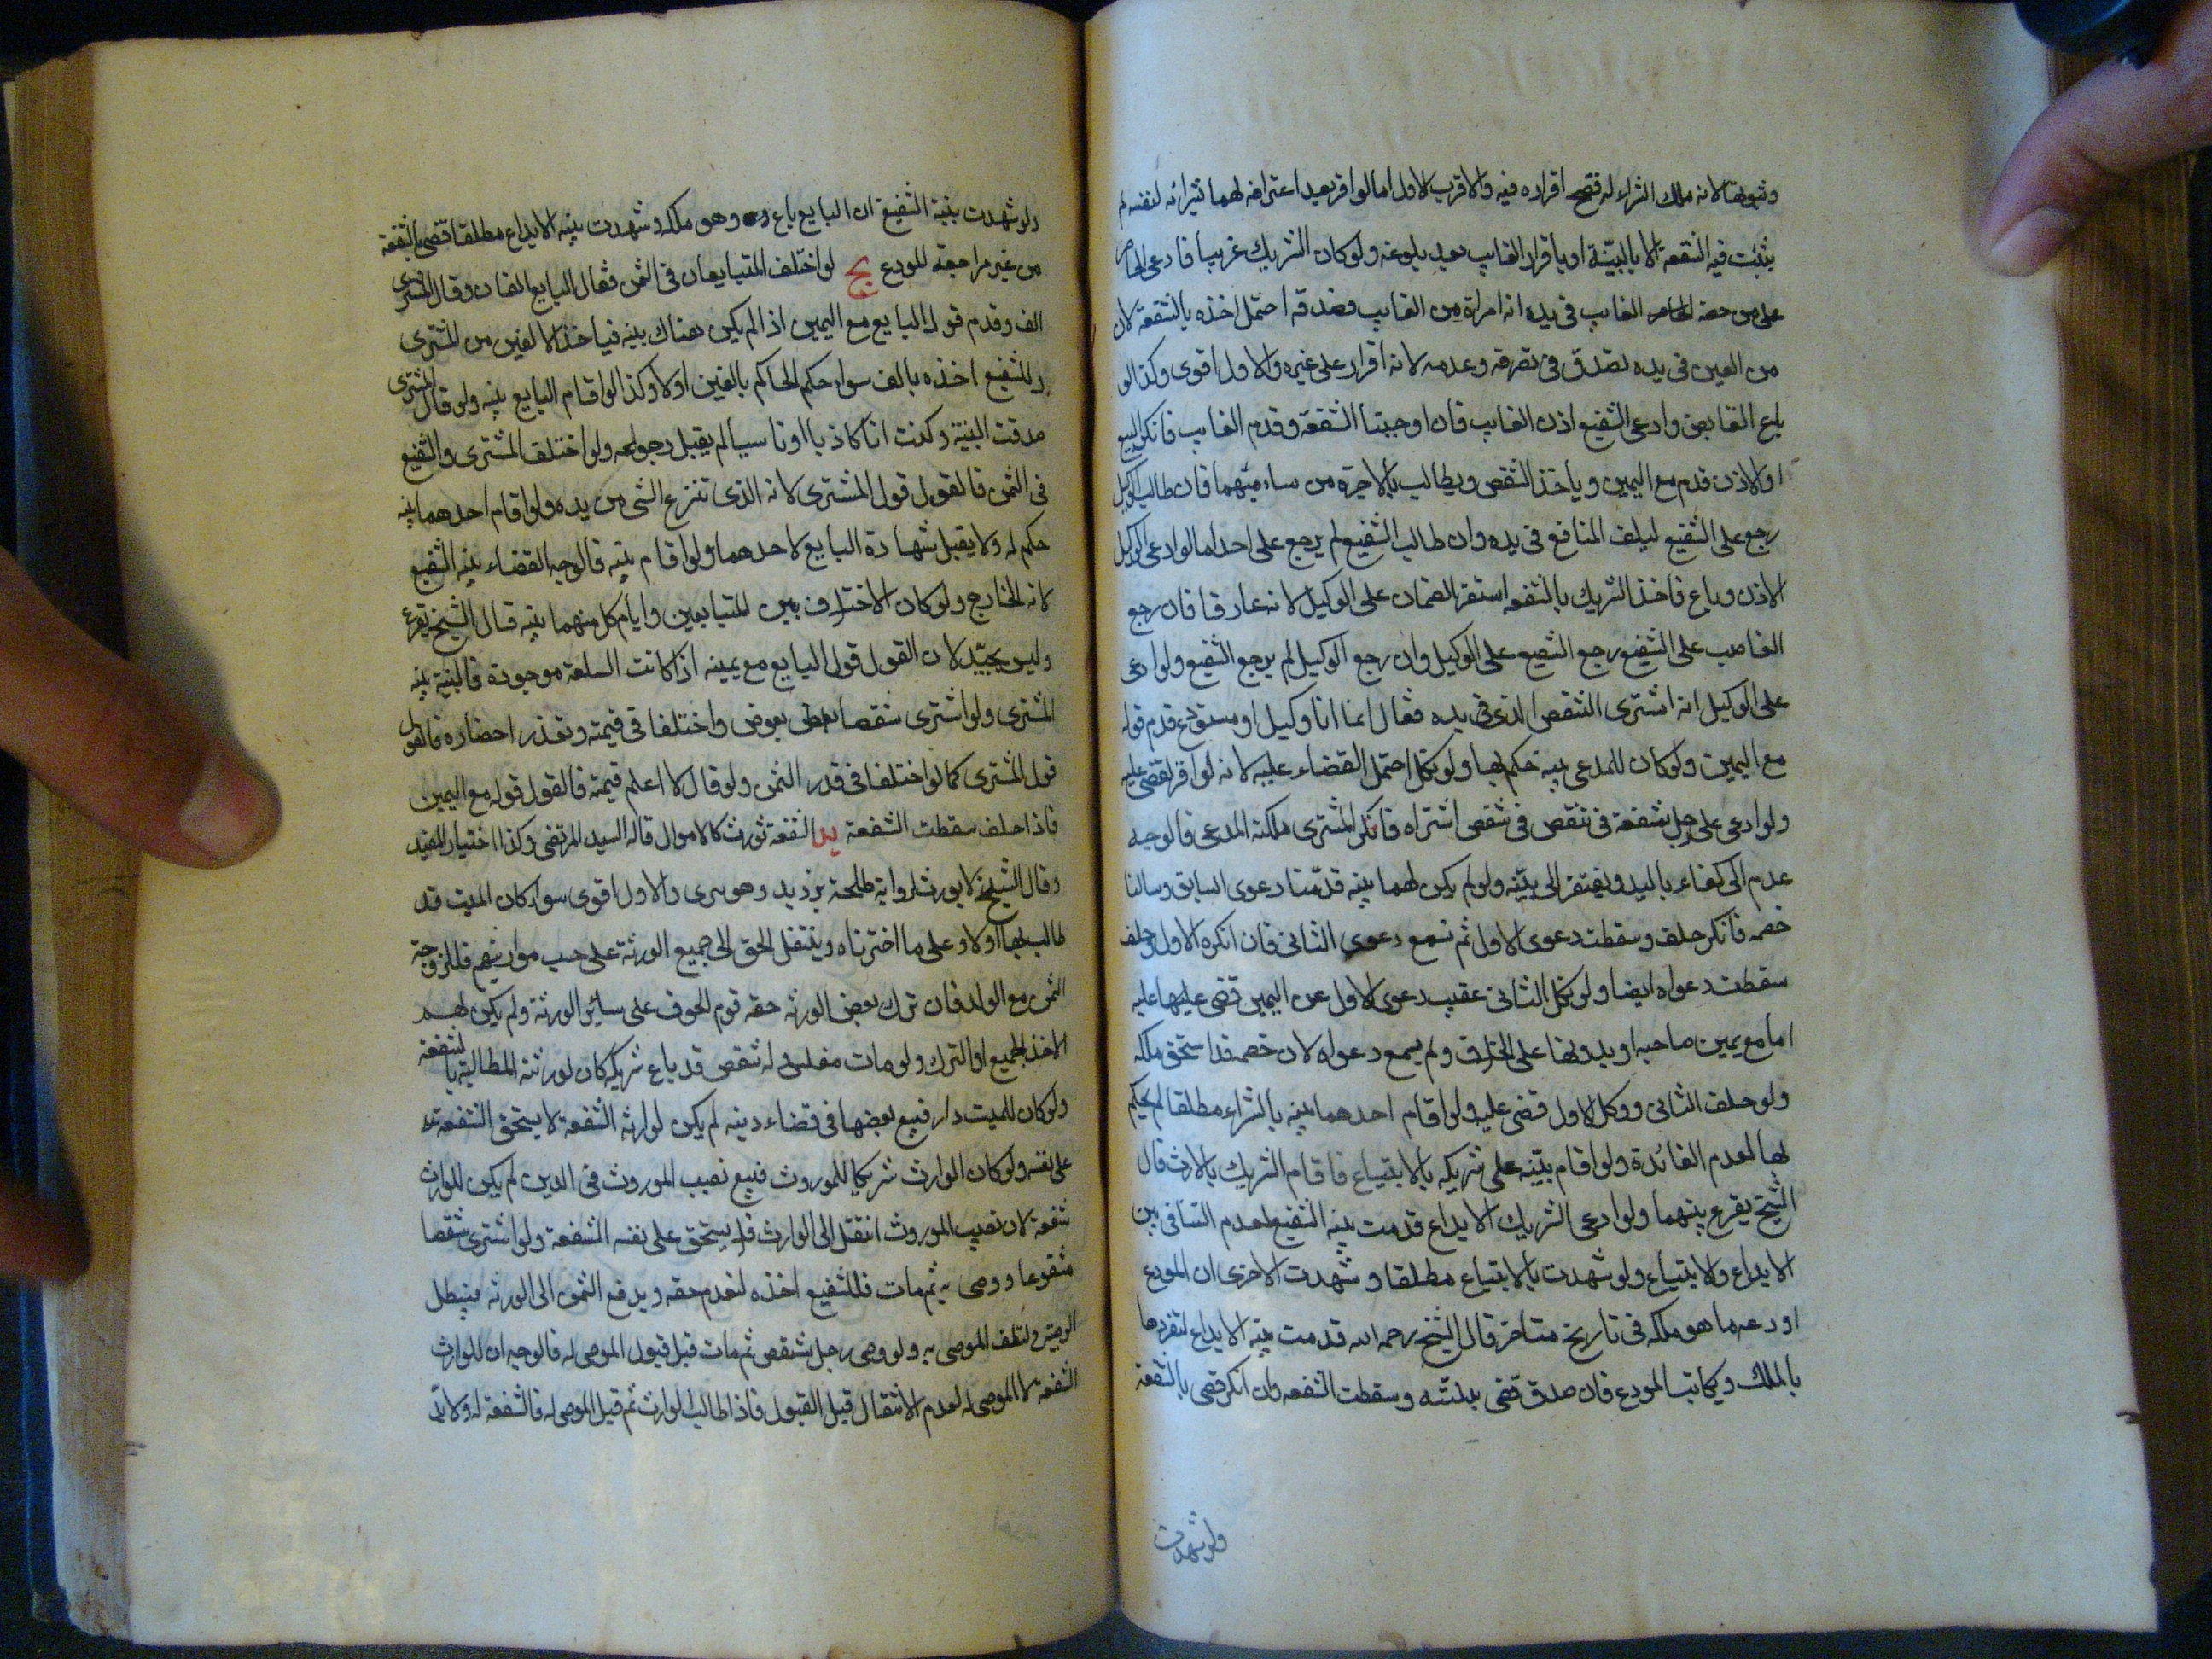 وثبوتها لانه ملك الشراء له فتصح اقراره فيه والاقرب الاول اما لو اقر بعد اعترافه لهما بشرائه لنفسه لم
يثبت فيه الشفعة الا بالبينة او باقرار الغايب بعد بلوغه ولو كان الشريك غريبا فادعى الحاضر
على من حصة الغايب فى يده انه اشتراه من الغايب فصدقه احتمل اخذه بالشفعة لان
من العين فى يده تصدق فى تصرفه وعدمه لانه اقرار على غيره والاول اقوى وكذا لو
باع القابض وادعى الشفيع اذن الغايب فان اوجبنا الشفعة وقدم الغايب فانكر البيع
او الاذن قدم مع اليمين وياخذ الشقص ويطالب بالاجرة من شاء منهما فان طالب الوكيل
رجع على الشفيع لتلف المنافع فى يده وان طالب الشفيع لم يرجع على احد اما لو ادعى الوكيل
الاذن وباع فاخذ الشريك بالشفعه استقر الضمان على الوكيل لانه عارف فان رجع
الغاصب على الشفيع رجع الشفيع على الوكيل وان رجع الوكيل لم يرجع الشفيع ولو ادعى
على الوكيل انه اشترى الشقص الذى فى يده فقال انما انا وكيل او مستودع قدم قوله
مع اليمين ولو كان للمدعى بينه حكم لها ولو نكل احتمل القضاء عليه لانه لو اقر لقضى عليه
ولو ادعى على رجل شفعة فى شقص اشتراه فانكر المشترى ملكيه المدعى فالوجه
عدم الاكتفاء باليد ويفتقر الى بينه ولو لم يكن لهما بينه قدمنا دعوى السابق وسالنا
خصمه فانكر حلف وسقطت دعوى الاول ثم نسمع دعوى الثانى فان انكره الاول وحلف
سقطت دعواه ايضا ولو نكل الثانى عقيب دعوى الاول عن اليمين قضى عليها عليه
اما مع يمين صاحبه او بدونها على الخلاف ولم يسمع دعواه لان خصمه قد استحق ملكه
ولو حلف الثانى ونكل الاول قضى عليه ولو اقام احدهما بينه بالشراء مطلقا لم يحكم
لها لعدم الفائدة ولو اقام بينه على شريكه بالابتياع فاقام الشريك بالارث قال
الشيخ يقرع بينهما ولو ادعى الشريك الايداع قدمت بينه الشفيع لعدم التنافى بين
الايداع والابتياع ولو شهدت بالابتياع مطلقا وشهدت الاخرى ان المودع
اودعه ما هو ملكه فى تاريخ متاخر قال الشيخ رحمه الله قدمت بينه الايداع لتفردها
بالملك ويكاتب المودع فان صدق قضى ببينته وسقطت الشفعه وان انكر قضى بالشفعة
ولو شهدت
ولو شهدت بينة الشفيع ان البايع باع وهو ملكه وشهدت بينه الايداع مطلقا قضى بالشفعة
من غير مراجعة للمودع يج لو اختلف المتبايعان فى الثمن فقال البايع الفان وقال المشترى
الف وقدم قول البايع مع اليمين اذا لم يكن هناك بينه فياخذ الالفين من المشترى
وللشفيع اخذه بالف سواء حكم الحاكم بالفين اولا وكذا لو اقام البايع بينه ولو قال المشترى
صدقت البينة وكنت انا كاذبا او ناسيا لم يقبل رجوعه ولو اختلف المشترى والشفيع
فى الثمن فالقول قول المشترى لانه الذى تنتزع الشى من يده ولو اقام احدهما بينه
حكم له ولا يقبل شهادة البايع لاحدهما ولو اقام بينه فالوجه القضاء ببينه الشفيع
لانه الخارج ولو كان الاختلاف بين المتبايعين واقام كل منهما بينه قال الشيخ يقرع
وليس بجيد لان القول قول البايع مع يمينه اذا كانت السلعة موجودة فالبينة بينه
المشترى ولو اشترى شقصا بعوض واختلفا فى قيمته وتعذر احضاره فالقول
قول المشترى كما لو اختلفا فى قدر الثمن ولو قال لا اعلم قيمته فالقول قوله مع اليمين
فاذا حلف سقطت الشفعة يد الشفعة تورث كالاموال قاله السيد المرتضى وكذا اختيار المفيد
وقال الشيخ لا يورث لرواية طلحة بن زيد وهو بترى والاول اقوى سواء كان الميت قد
طالب بها اولا وعلى ما اخترناه وينتقل الحق الى جميع الورثة على حسب مواريثهم فللزوجة
الثمن مع الولد فان ترك بعض الورثه حقه توفر الحق على سائر الورثة ولم يكن لهم
الاخذ الجميع او الترك ولو مات مفلس وله شقص قد باع شريكه كان لورثته المطالبة بالشفعة
ولو كان للميت دار فبيع بعضها فى قضاء دينه لم يكن لوارثه الشفعة لا يستحق الشفعة
على نفسه ولو كان الوارث شريكا للموروث فبيع نصيب الموروث فى الدين لم يكن للوارث
شفعة لان نصيب الموروث انتقل الى الوارث فلا يستحق على نفسه الشفعة ولو اشترى شقصا
مشفوعا ووصى به ثم مات فللشفيع اخذه لتقدم حقه ويدفع الثمن الى الورثه فيبطل
الوصية لتلف الموصى به ولو وصى رجل بشقص ثم مات قبل قبول الموصى له فالوجه ان للوارث
الشفعة لا الموصى له لعدم الانتقال قبل القبول فاذا طالب الوارث ثم قبل الموصى له فالشفعة له ولابد